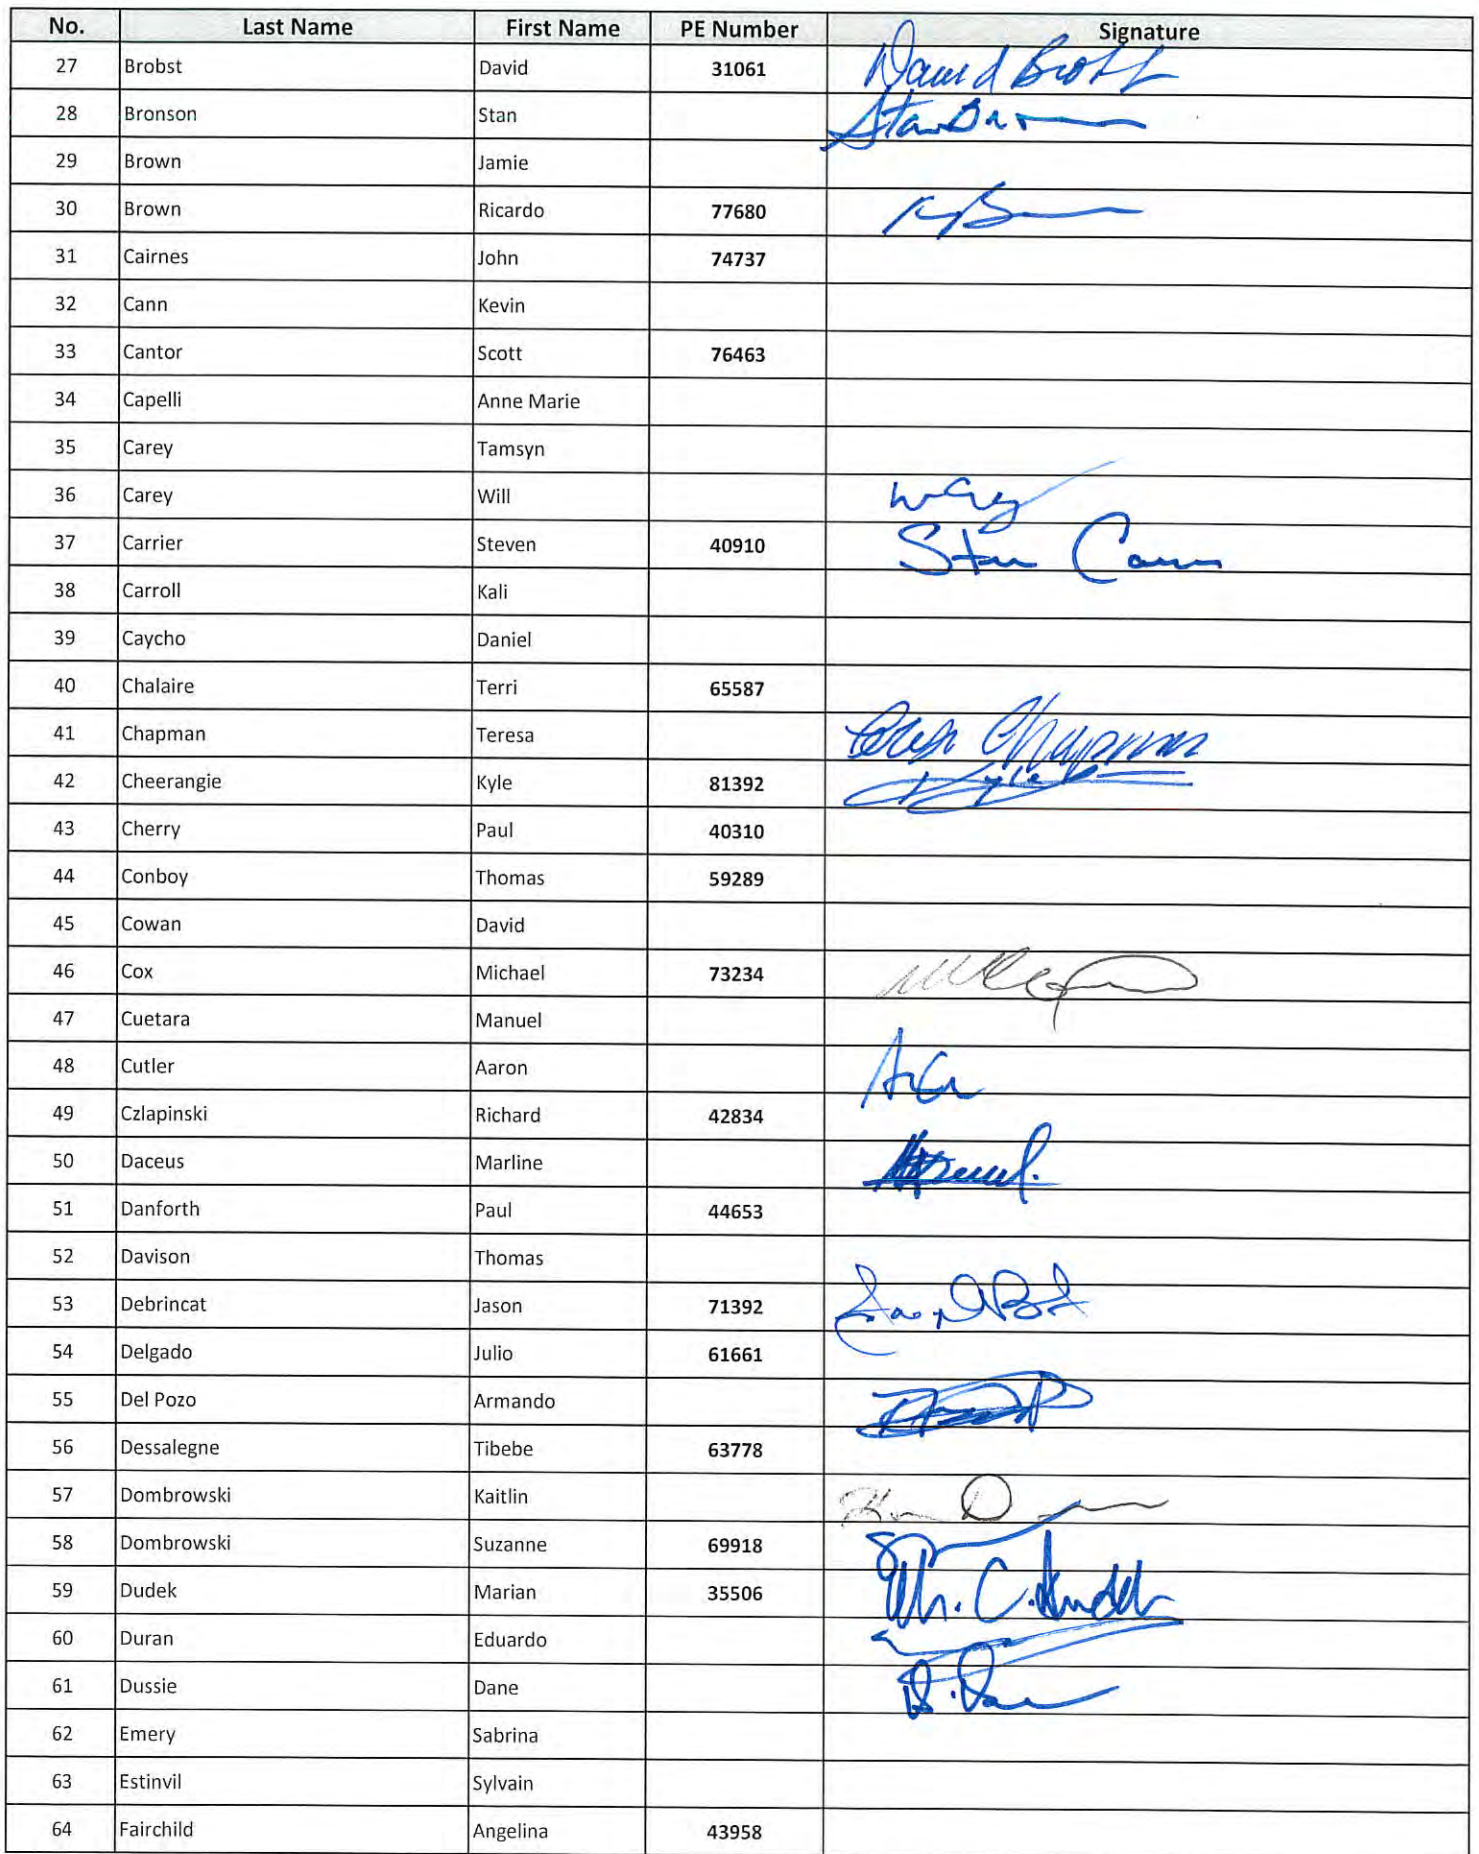 No. Last Name First Name PE Number Signature
27 Brobst David 31061 David Brobst
28 Bronson Stan
29 Brown Jamie
30 Brown Ricardo 77680
31 Cairnes John 74737
32 Cann Kevin
33 Cantor Scott 76463
34 Capelli Anne Marie
35 Carey Tamsyn
36 Carey Will
37 Carrier Steven 40910
38 Carroll Kali
39 Caycho Daniel
40 Chalaire Terri 65587
41 Chapman Teresa Chapman
42 Cheerangie Kyle 81392 Kyle
43 Cherry Paul 40310
44 Conboy Thomas 59289
45 Cowan David
46 Cox Michael 73234
47 Cuetara Manuel
48 Cutler Aaron
49 Czlapinski Richard 42834
50 Daceus Marline
51 Danforth Paul 44653
52 Davison Thomas
53 Debrincat Jason 71392
54 Delgado Julio 61661
55 Del Pozo Armando
56 Dessalegne Tibebe 63778
57 Dombrowski Kaitlin
58 Dombrowski Suzanne 69918
59 Dudek Marian 35506
60 Duran Eduardo
61 Dussie Dane
62 Emery Sabrina
63 Estinvil Sylvain
64 Fairchild Angelina 43958